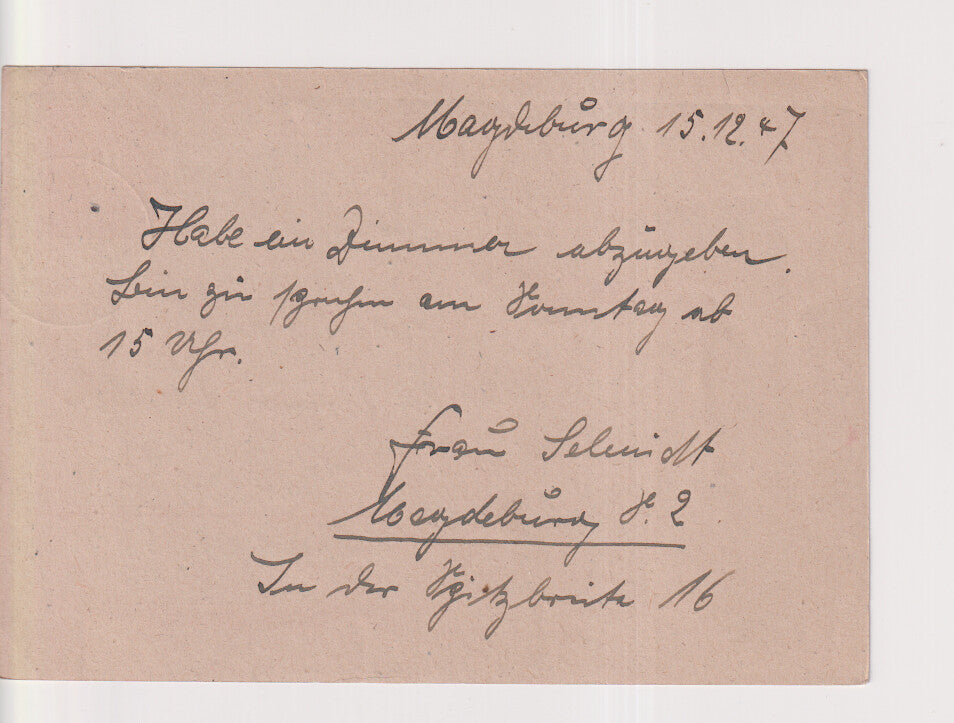 Magdeburg 15.12.47
Habe ein Zimmer abzugeben.
Bin zu sprechen am Sonntag ab
15 Uhr.
Frau Schmidt
Magdeburg S. 2
In der Spitzbreite 16